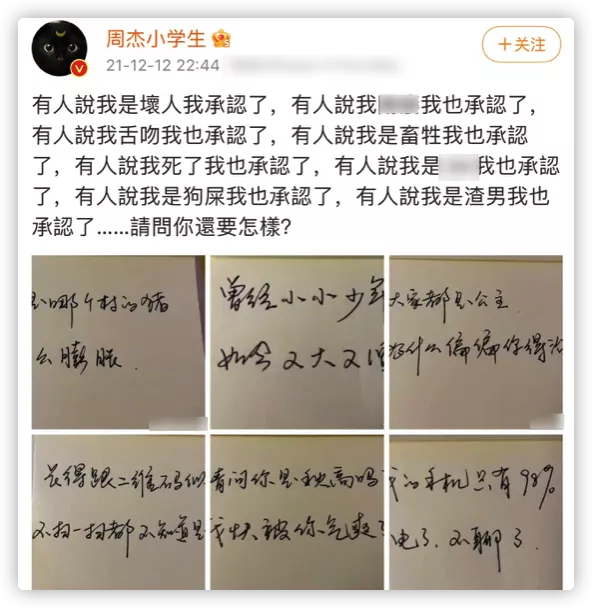 周杰小学生
21-12-12 22:44
+关注
有人說我是壞人我承認了，有人說我 我也承認了，
有人說我舌吻我也承認了，有人說我是畜牲我也承認
了，有人說我死了我也承認了，有人說我是 我也承認
了，有人說我是狗屎我也承認了，有人說我是渣男我也
承認了......請問你還要怎樣？
是哪个村的猪
么膨胀
曾经小小少年
如今又大又
大家都是公主
为什么偏偏你得
长得跟二维码似
不扫一扫都不知道是
请问你是秋高吗
我快被你气爽了
我的手机只有98%
电了.不聊了.